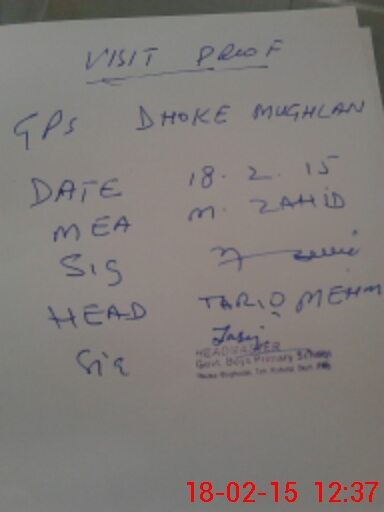 VISIT PROOF
GPS DHOKE MUGHLAN
DATE 18. 2. 15
MEA M. ZAHID
Sig
HEAD TARIQ MEHM
Sig Tariq
HEADMASTER
Govt. Boys Primary School
18-02-15 12:37